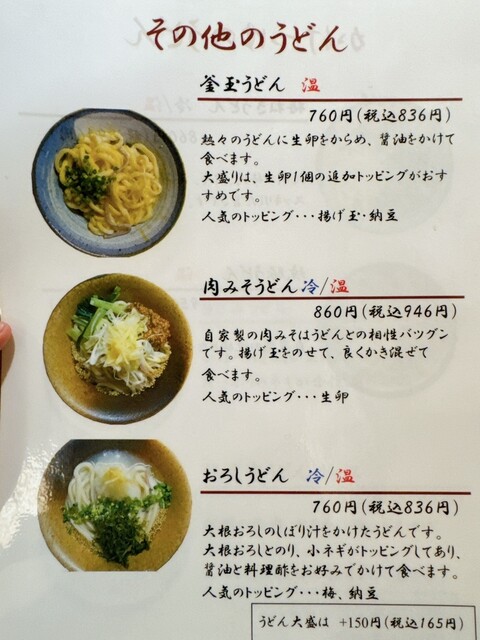 その他のうどん
釜玉うどん 温
760円(税込836円)
熱々のうどんに生卵をからめ、醤油をかけて
食べます。
大盛りは、生卵1個の追加トッピングがおす
すめです。
人気のトッピング・・・揚げ玉・納豆
肉みそうどん 冷/温
860円(税込946円)
自家製の肉みそはうどんとの相性バツグン
です。揚げ玉をのせて、良くかき混ぜて
食べます。
人気のトッピング・・・生卵
おろしうどん 冷/温
760円(税込836円)
大根おろしのしぼり汁をかけたうどんです。
大根おろしとのり、小ネギがトッピングしてあり、
醤油と料理酢をお好みでかけて食べます。
人気のトッピング・・・梅、納豆
うどん大盛は +150円(税込165円)